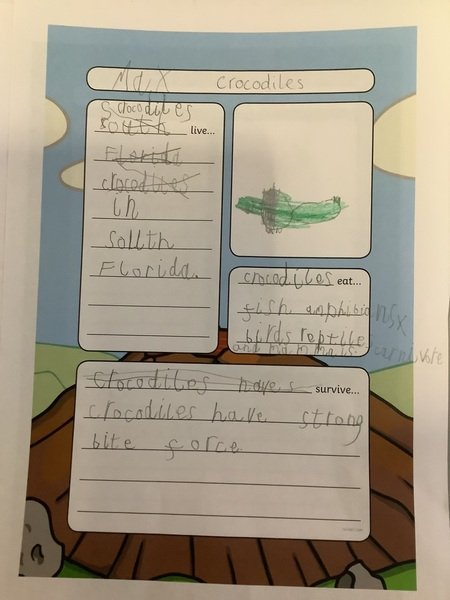 Max crocodiles
crocodiles
south live...
Florida
crocodiles
in
South
Florida.
crocodiles eat...
fish amphibians
birds reptile
and mammals. carnivore
crocodiles have s survive...
crocodiles have strong
bite force